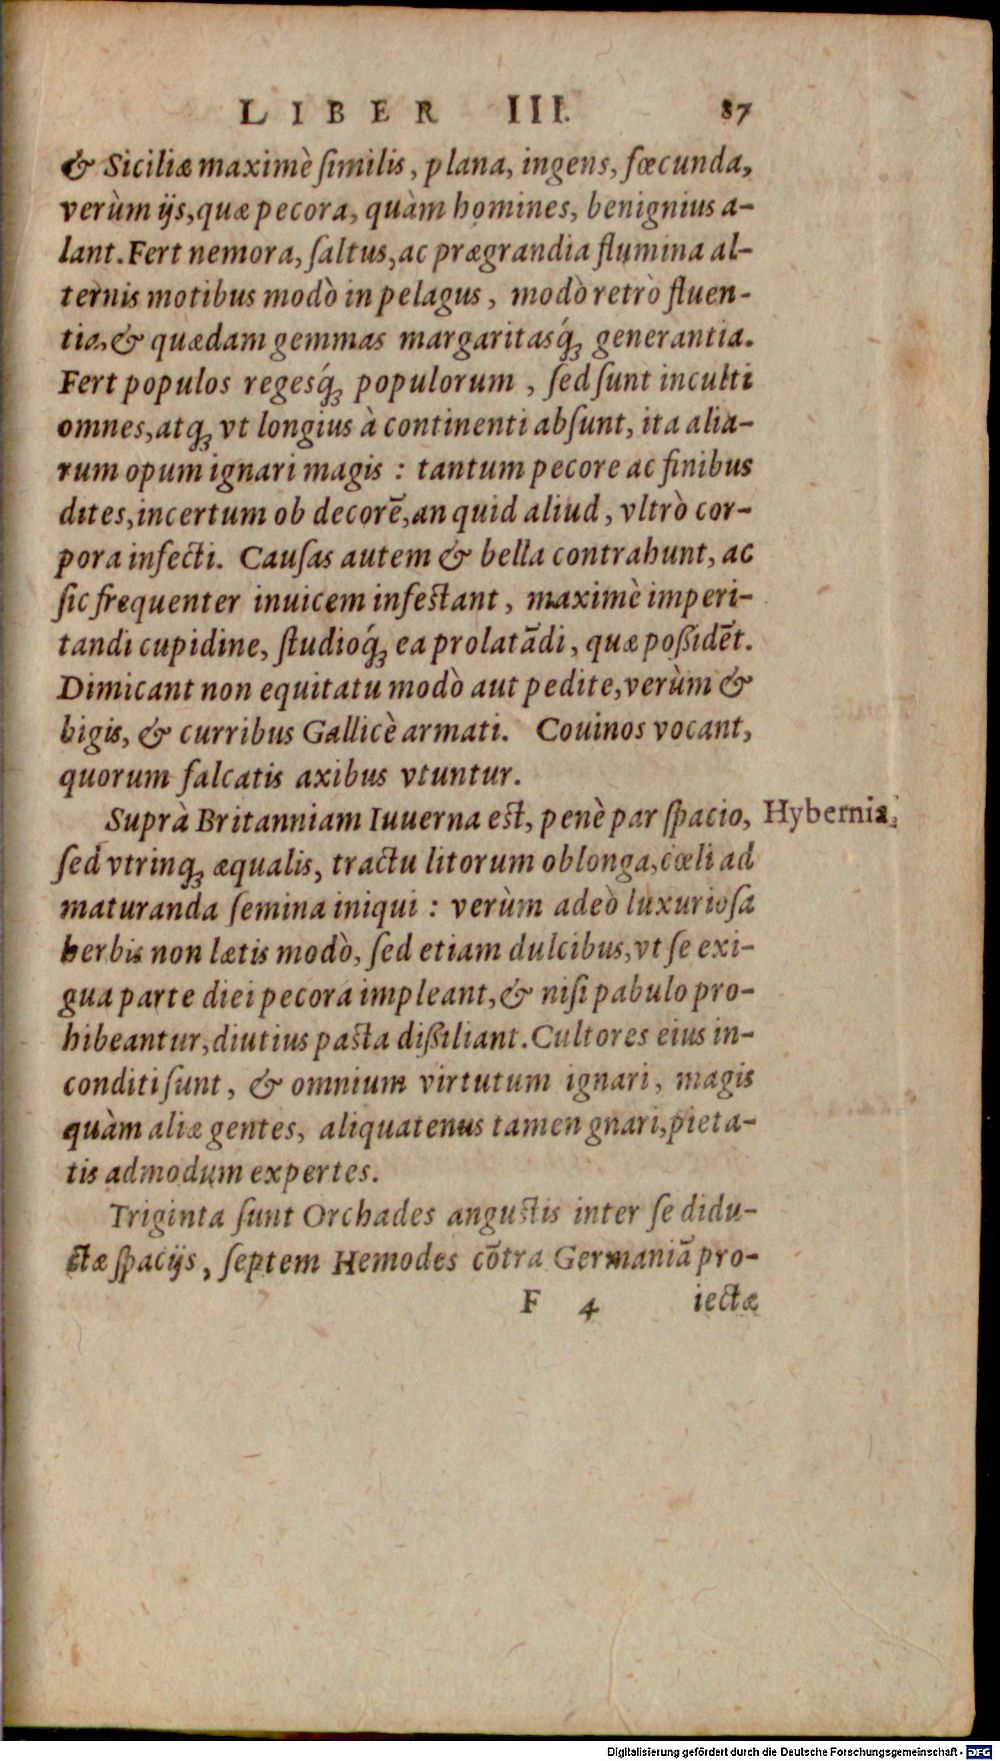 LIBER III. 87
& Siciliæ maximè ſimilis, plana, ingens, fœcunda,
verùm ijs, quæ pecora, quàm homines, benignius a-
lant. Fert nemora, ſaltus, ac prægrandia flumina al-
ternis motibus modò in pelagus, modò retrò fluen-
tia, & quædam gemmas margaritasq́ꝫ generantia.
Fert populos regesq́ꝫ populorum, ſed ſunt inculti
omnes, atqꝫ vt longius à continenti abſunt, ita alia-
rum opum ignari magis: tantum pecore ac finibus
dites, incertum ob decorē, an quid aliud, vltrò cor-
pora infecti. Cauſas autem & bella contrahunt, ac
ſic frequenter inuicem infeſtant, maximè imperi-
tandi cupidine, ſtudioq́ꝫ ea prolatādi, quæ poßidēt.
Dimicant non equitatu modò aut pedite, verùm &
bigis, & curribus Gallicè armati. Couinos vocant,
quorum falcatis axibus vtuntur.
Suprà Britanniam Iuuerna eſt, penè par ſpacio,
Hybernia.
ſed vtrinqꝫ æqualis, tractu litorum oblonga, cœli ad
maturanda ſemina iniqui: verùm adeò luxurioſa
herbis non lætis modò, ſed etiam dulcibus, vt ſe exi-
gua parte diei pecora impleant, & niſi pabulo pro-
hibeantur, diutius paſta dißiliant. Cultores eius in-
conditi ſunt, & omnium virtutum ignari, magis
quàm aliæ gentes, aliquatenus tamen gnari, pieta-
tis admodum expertes.
Triginta ſunt Orchades anguſtis inter ſe didu-
ctæ ſpacijs, ſeptem Hemodes cōtra Germaniā pro-
F 4 iectæ
Digitalisierung gefördert durch die Deutsche Forschungsgemeinschaft - DFG